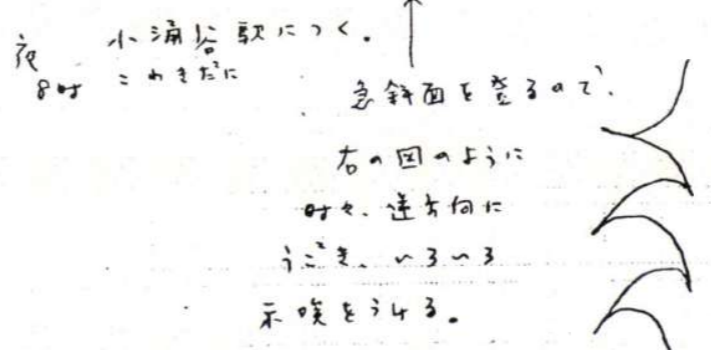 夜 小涌谷駅につく。
8時 こわきだに
急斜面を登るので、
右の図のように
時々、逆方向に
うごき、いろいろ
示唆をうける。